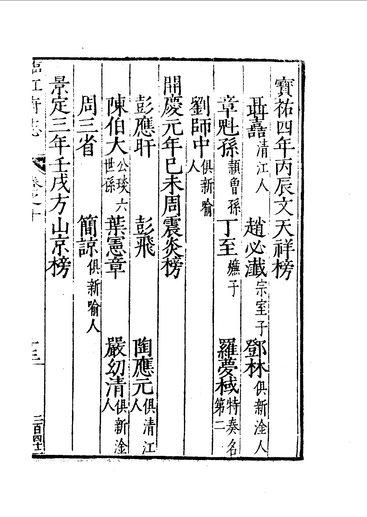 寶祐四年丙辰文天祥榜
聶嚞清江人 趙必𤅬宗室子 鄧林俱新淦人
章魁孫頴魯孫 丁至嬿子 羅夢棫特奏名第二
劉師中俱新喻人
開慶元年己未周震炎榜
彭應旰 彭飛 陶應元俱清江人
陳伯大公琰六世孫 葉憲章 嚴幼清俱新淦人
周三省 簡諒俱新喻人
景定三年壬戌方山京榜
臨江府志 卷之十 十三